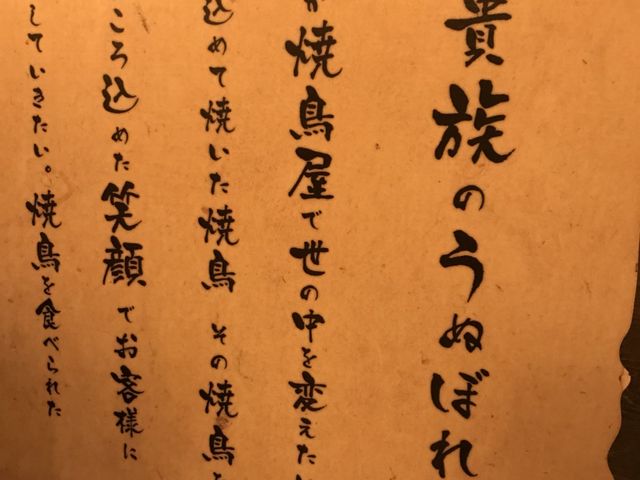 貴族のうぬぼれ
が焼鳥屋で世の中を変えたい
込めて焼いた焼鳥 その焼鳥を
ころ込めた笑顔でお客様に
していきたい。焼鳥を食べられた